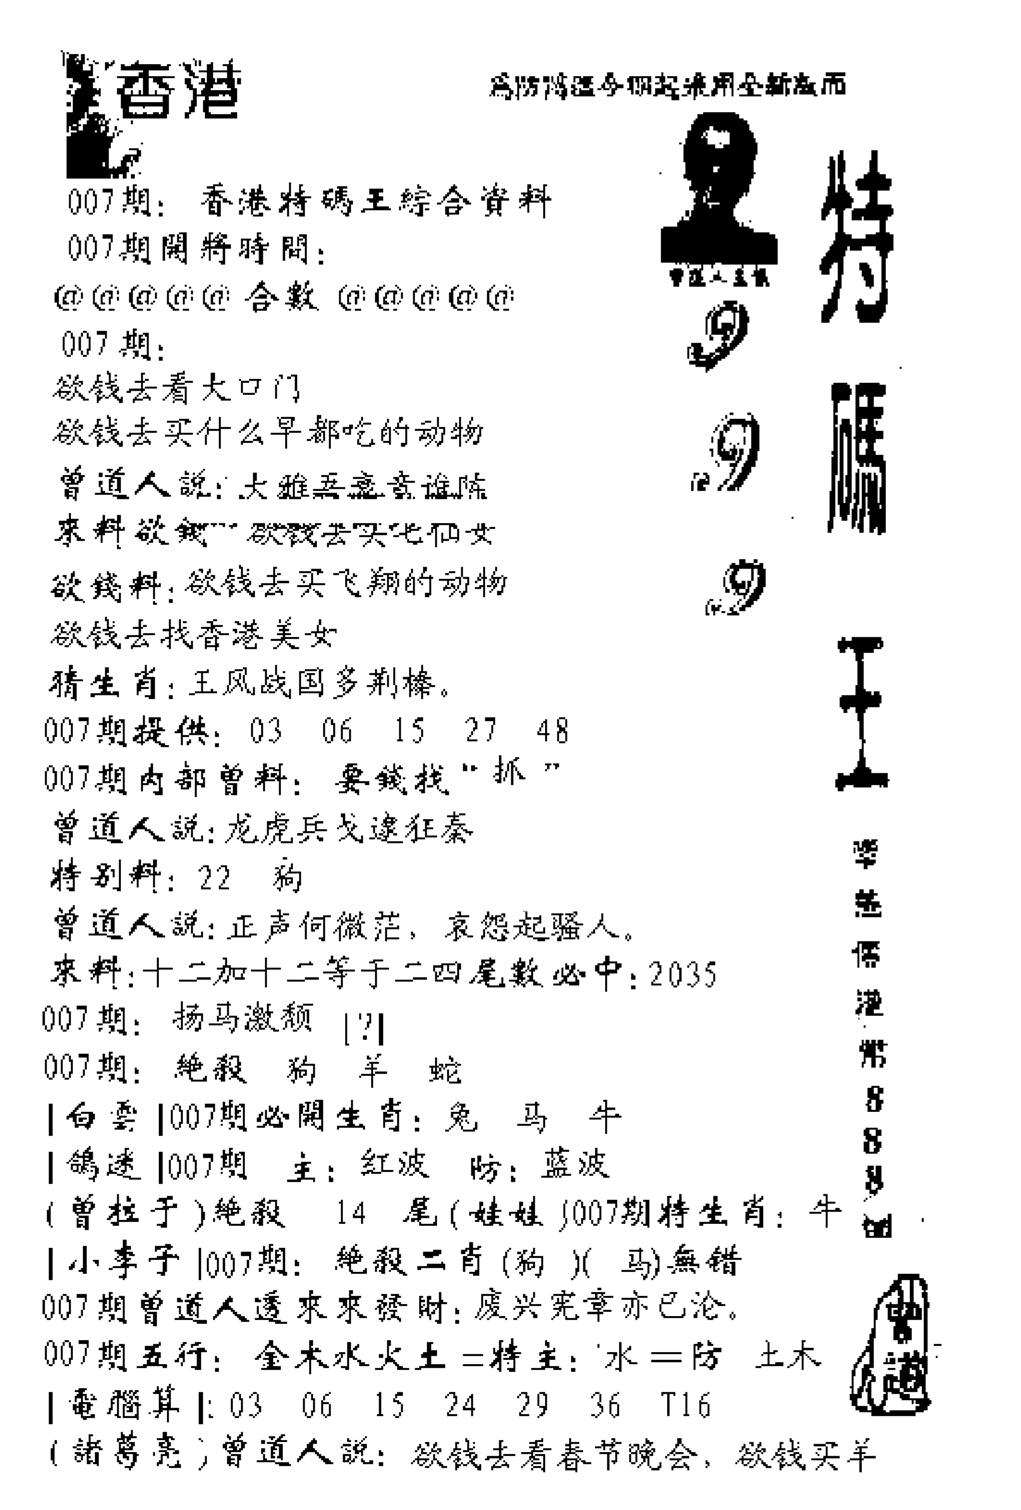 香港
為防
007期: 香港特碼王綜合資料
007期開將時間:
@@@@@ 合數 @@@@@
007期:
欲钱去看大口门
欲钱去买什么早都吃的动物
曾道人説: 大雅
來料欲錢 欲钱去买七仙女
欲錢料: 欲钱去买飞翔的动物
欲钱去找香港美女
猜生肖: 王风战国多荆榛。
007期提供: 03 06 15 27 48
007期内部曾料: 要錢找“抓”
曾道人説: 龙虎兵戈逮狂秦
特别料: 22 狗
曾道人説: 正声何微茫, 哀怨起骚人。
來料:十二加十二等于二四尾數必中: 2035
007期: 扬马激颓 |?|
007期: 絶殺 狗 羊 蛇
|白雲|007期必開生肖: 兔 马 牛
|鴿迷|007期 主: 红波 防: 蓝波
(曾拉于)絶殺 14 尾(娃娃)007期特生肖: 牛
|小李子|007期: 絶殺二肖(狗 )( 马)無錯
007期曾道人透來來發財: 废兴宪章亦已沦。
007期五行: 金木水火土=特主: 水=防 土木
|電腦算|: 03 06 15 24 29 36 T16
(諸葛亮)曾道人説: 欲钱去看春节晚会, 欲钱买羊
9
9
9
特碼王
港幣888